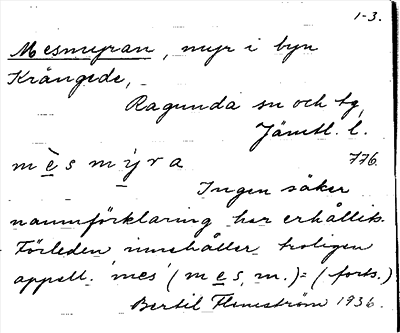 1-3.
Mesmyran, myr i byn
Krångede,
Ragunda sn och tg,
Jämtl. l.
mèsmyra 776.
Ingen säker
namnförklaring har erhållits.
Förleden innehåller troligen
appell. 'mes' (mes, m.) = (forts.)
Bertil Flemström 1936.